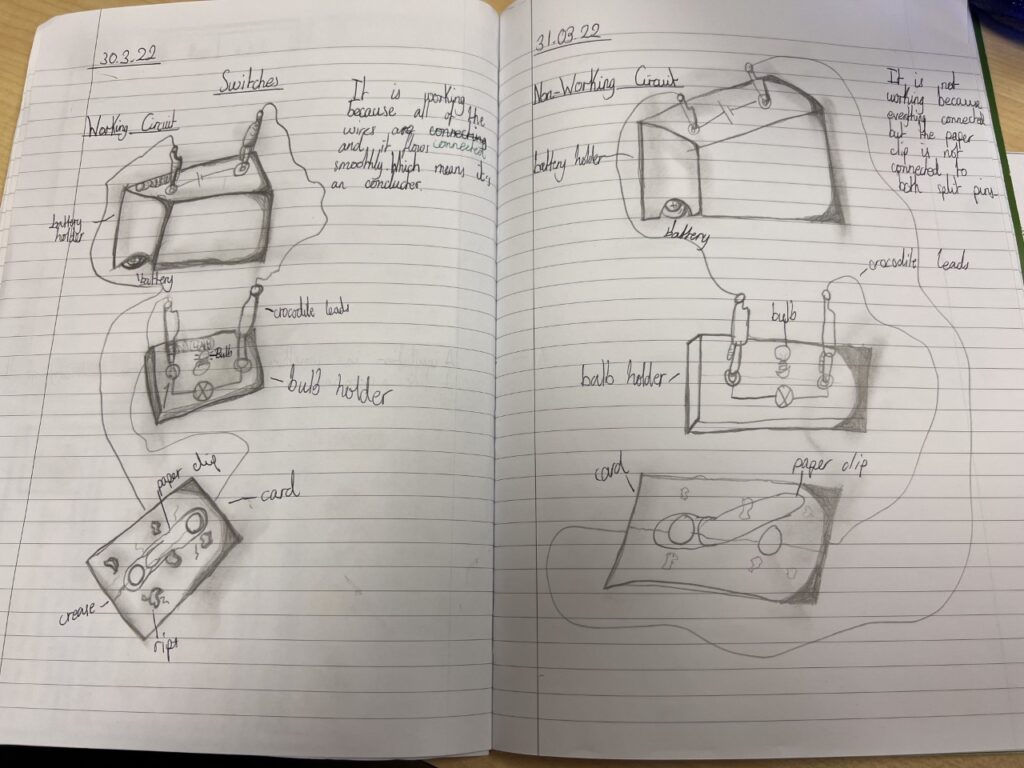 30.3.22
Switches
Working Circuit
It is working
because all of the
wires are connecting
and it flows connected
smoothly which means it's
an conducter.
battery
holder
battery
crocodile leads
Bulb
bulb holder
paper clip
card
crease
rips
31.03.22
Non-Working Circuit
It is not
working because
everting connected
but the paper
clip is not
connected to
both split pins
battery holder
battery
crocodile leads
bulb
bulb holder
card
paper clip